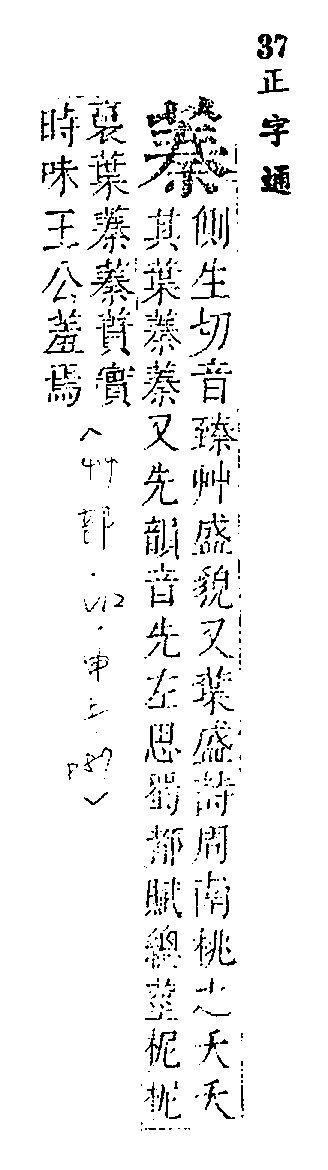 37正字通
蓁
側生切音臻艸盛貌又葉盛詩周南桃之夭夭
其葉蓁蓁又先韻音先左思蜀都賦總莖柅柅
裛葉蓁蓁蕡實
時味王公羞焉
〈艸部・申上